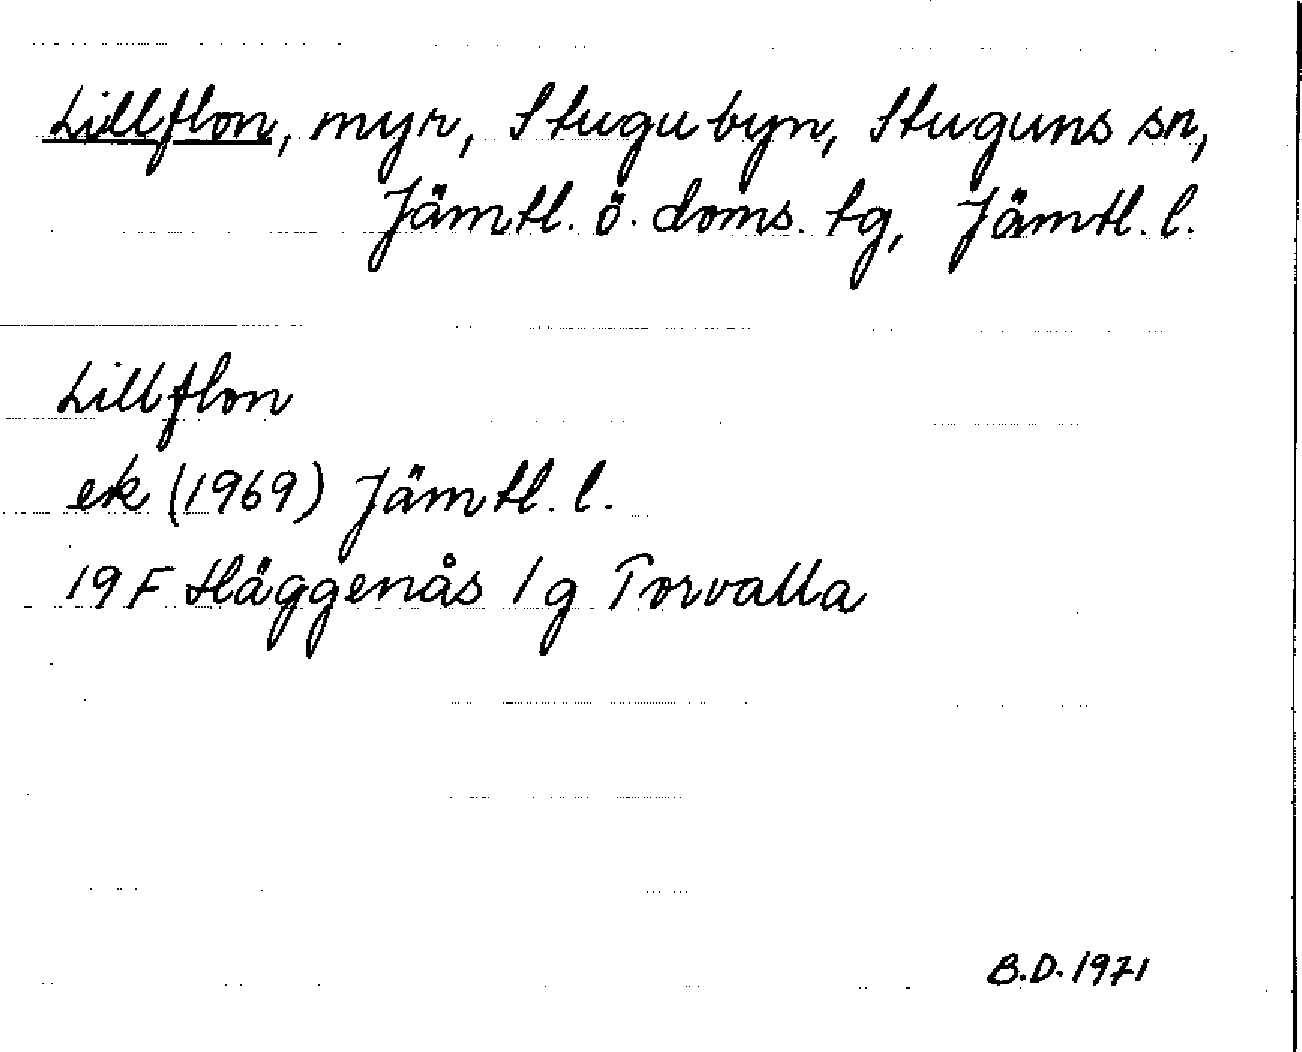 Lillflon, myr, Stugubyn, Stuguns sn,
Jämtl. ö. doms. tg, Jämtl. l.
Lillflon
ek (1969) Jämtl. l.
19 F Häggenås 1 g Torvalla
B.D. 1971